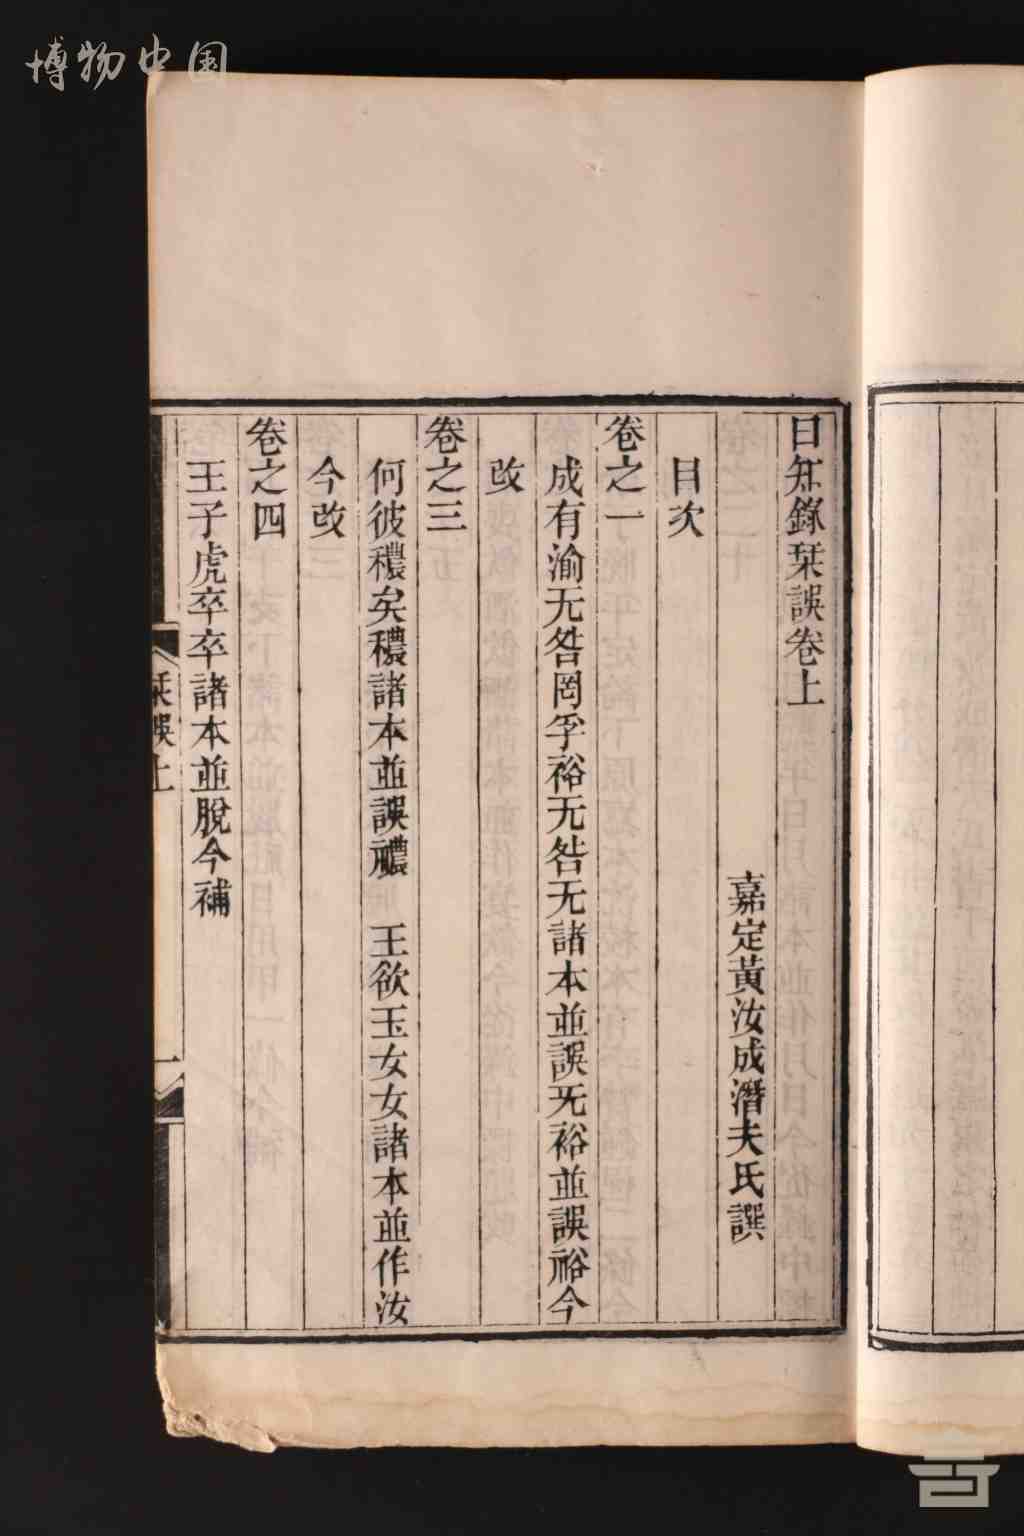 博物中国
日知錄栞誤卷上
嘉定黃汝成潛夫氏譔
目次
卷之一
成有渝无咎罔孚裕无咎无諸本並誤旡裕並誤𥙿今
改
卷之三
何彼穠矣穠諸本並誤禯 王欲玉女女諸本並作汝
今改
卷之四
王子虎卒卒諸本並脫今補
栞誤上
一